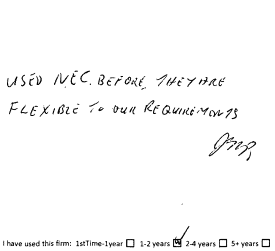 USED N.E.C. BEFORE, THEY ARE
FLEXIBLE TO OUR REQUIREMENTS
I have used this firm: 1stTime-1year ☐ 1-2 years ☑ 2-4 years ☐ 5+ years ☐